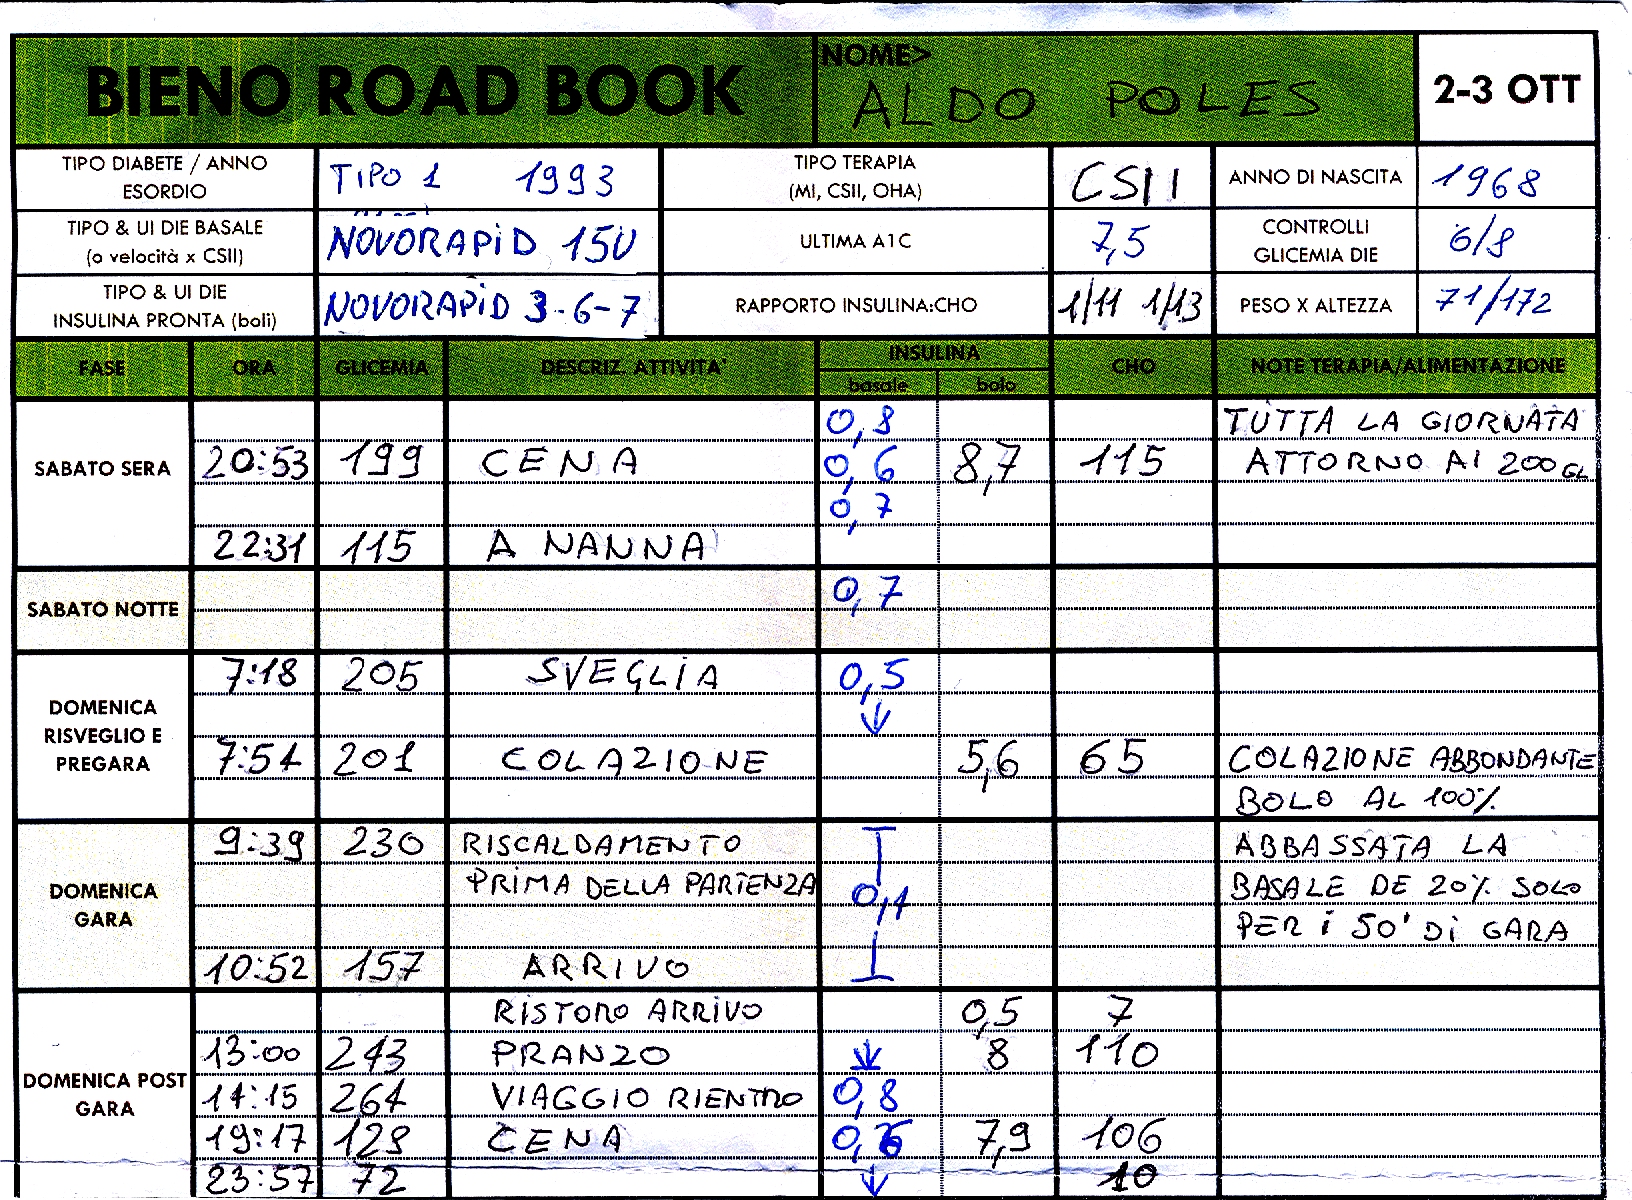 BIENO ROAD BOOK
NOME>
ALDO POLES
2-3 OTT
TIPO DIABETE / ANNO
ESORDIO
TIPO 1 1993
TIPO TERAPIA
(MI, CSII, OHA)
CSII
ANNO DI NASCITA
1968
TIPO & UI DIE BASALE
(o velocità x CSII)
NOVORAPID 15U
ULTIMA A1C
7,5
CONTROLLI
GLICEMIA DIE
6/8
TIPO & UI DIE
INSULINA PRONTA (boli)
NOVORAPID 3-6-7
RAPPORTO INSULINA:CHO
1/11 1/13
PESO X ALTEZZA
71/172
FASE
ORA
GLICEMIA
DESCRIZ. ATTIVITA'
INSULINA
basale
bolo
CHO
NOTE TERAPIA/ALIMENTAZIONE
SABATO SERA
0,8 TUTTA LA GIORNATA
20:53 199 CENA 0,6 8,7 115 ATTORNO AI 200 GL
0,7
22:31 115 A NANNA
SABATO NOTTE
0,7
DOMENICA
RISVEGLIO E
PREGARA
7:18 205 SVEGLIA 0,5
7:51 201 COLAZIONE 5,6 65 COLAZIONE ABBONDANTE
BOLO AL 100%
DOMENICA
GARA
9:39 230 RISCALDAMENTO ABBASSATA LA
PRIMA DELLA PARTENZA 0,1 BASALE DE 20% SOLO
PER i 50' Di GARA
10:52 157 ARRIVO
DOMENICA POST
GARA
RISTORO ARRIVO 0,5 7
13:00 243 PRANZO 8 110
14:15 264 VIAGGIO RIENTRO 0,8
19:17 CENA 7,9 106
23:57 72 10